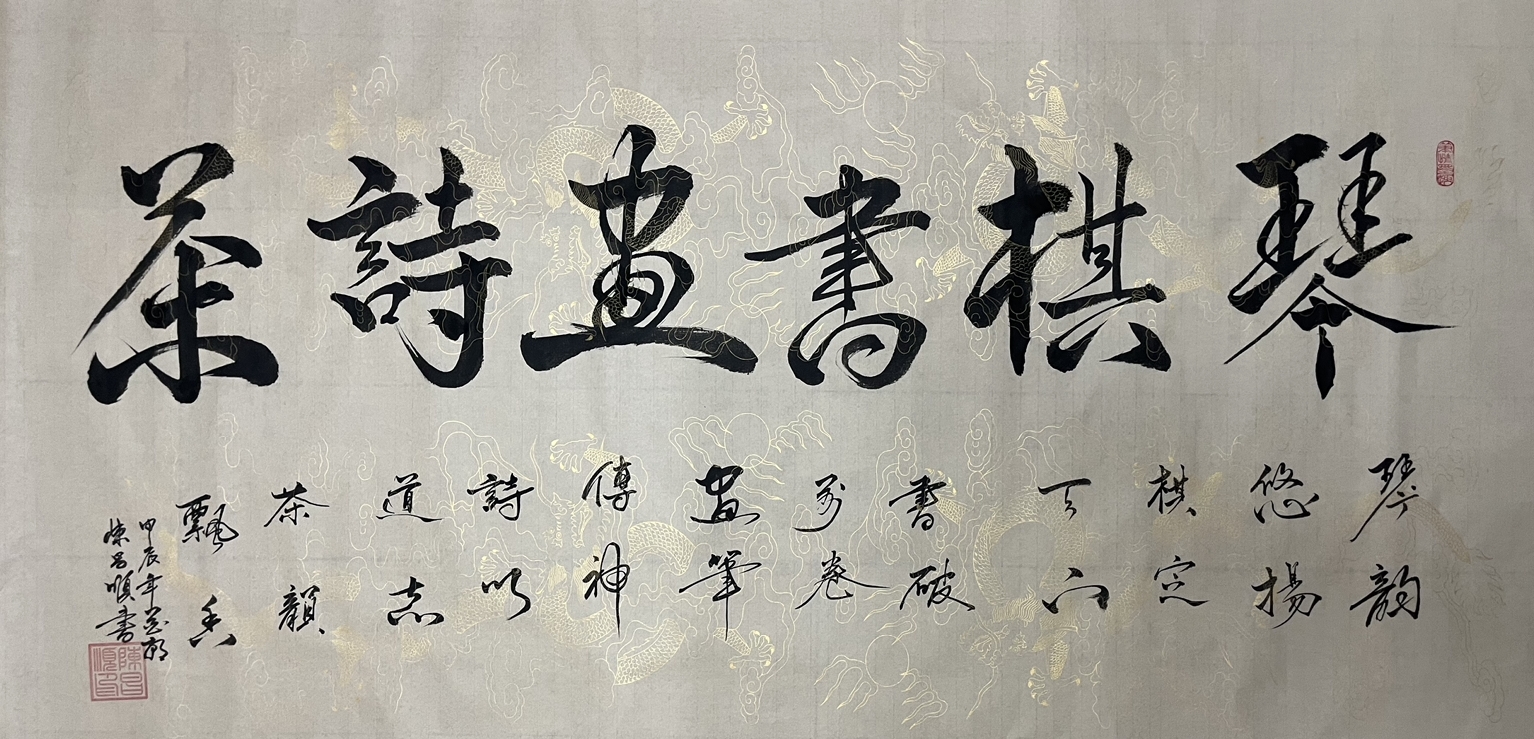 琴棋書畫詩茶
琴韵
悠揚
棋定
天下
書破
萬卷
畫筆
傳神
詩以
道志
茶韻
飄香
甲辰年
陳昌順書
陳昌順印